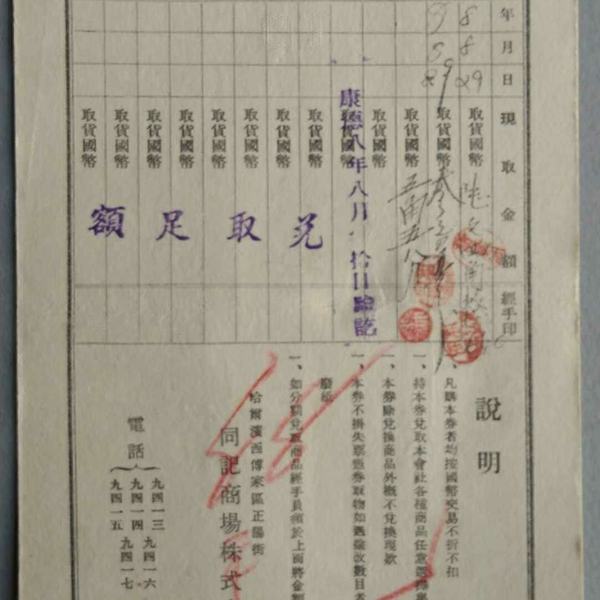 年月日現取金額經手印
8 8 29 取貨國幣
取貨國幣
取貨國幣
五角五分
取貨國幣
取貨國幣
康德八年八月
拾日驗訖
取貨國幣
取貨國幣
取貨國幣
取貨國幣
取貨國幣
取貨國幣
取貨國幣
取貨國幣
兌取足額
說明
一、凡購本券者均按國幣交易不折不扣
一、持本券兌取本會社各種商品任意選擇
一、本券除兌換商品外概不兌換現款
一、本券不掛失票憑券取物如遇塗改數目者
廢紙
一、如分額兌取商品經手員須於上面將金額
哈爾濱西傅家區正陽街
同記商場株式
電話
九四一三
九四一四
九四一五
九四一六
九四一七